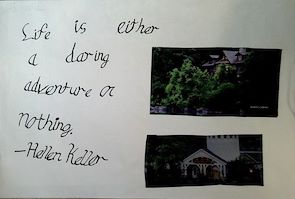 Life is either
a daring
adventure or
nothing.
-Hellen Keller